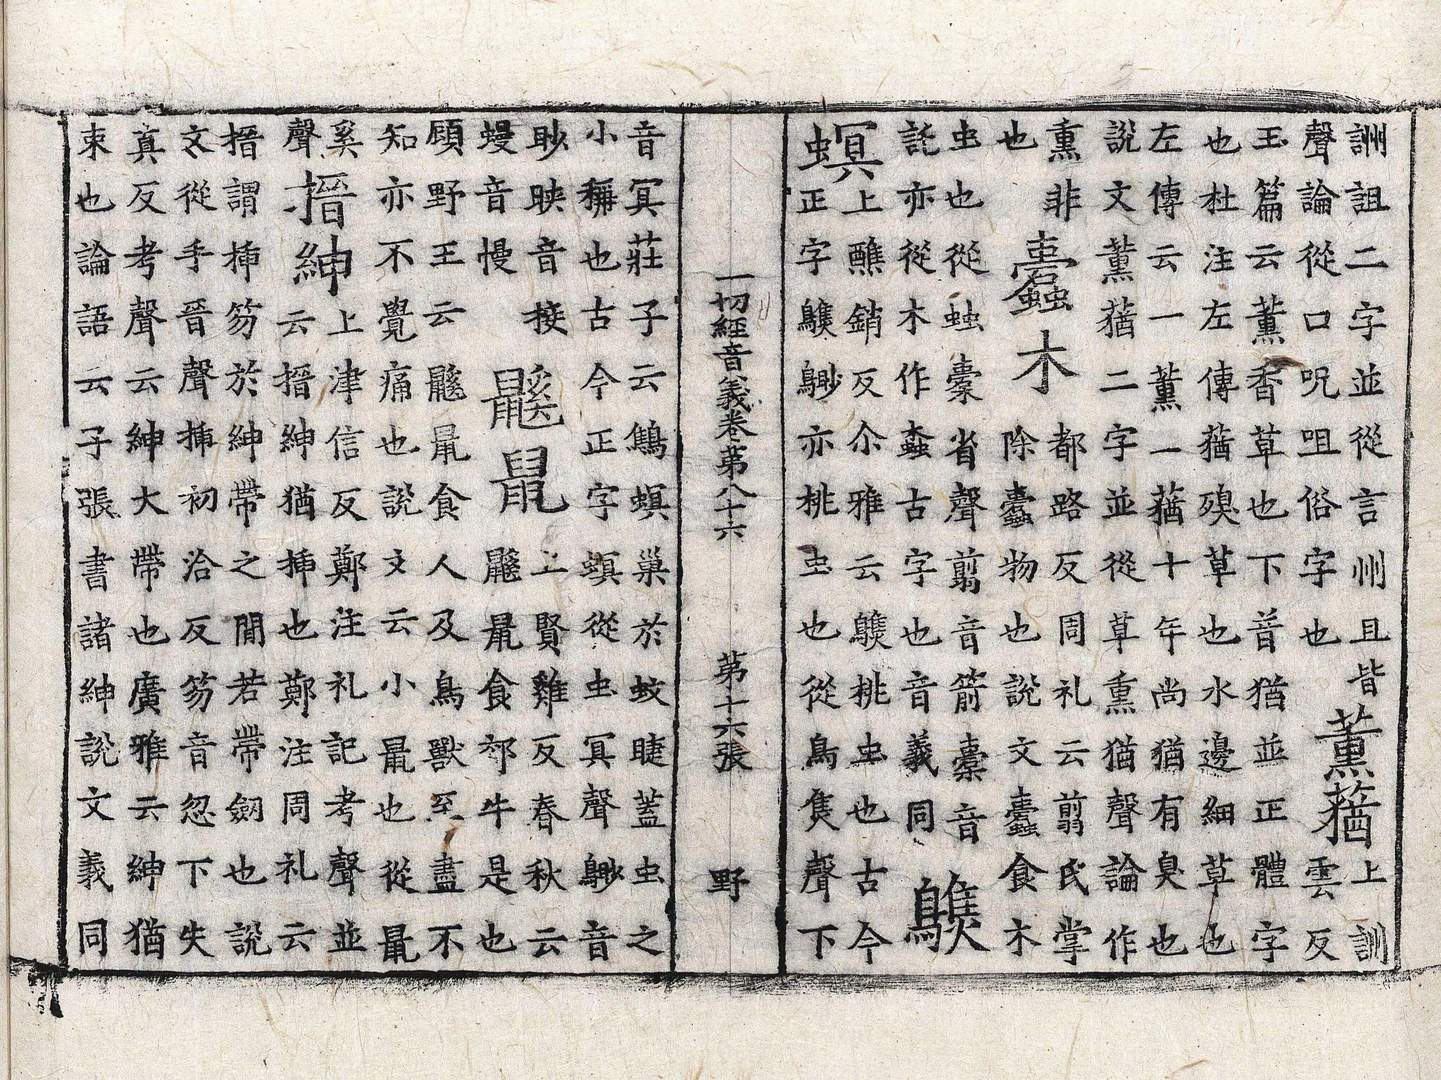 詶詛二字並從言州且皆
聲論從口呪咀俗字也
薰蕕
上訓
雲反
玉篇云薰香草也下音猶並正體字
也杜注左傳蕕㱙草也水邊細草也
左傳云一薰一蕕十年尚猶有臭也
說文薰蕕二字並從草熏猶聲論作
熏非
也
蠹木
都路反周礼云剪氏掌
除蠹物也說文蠹食木
虫也從䖵橐省聲剪音箭橐音
託亦從木作螙古字也音義同
鷦
螟
上醮銷反尒雅云鷦桃虫也古今
正字鷦䳂亦桃虫也從鳥焦聲下
一切經音義卷第八十六 第十六張 野
音冥莊子云鷦螟巢於蚊睫蓋虫之
小稱也古今正字螟從虫冥聲䳂音
眇睫音接
蟃音慢
鼷鼠
上賢雞反春秋云
鼷鼠食郊牛是也
顧野王云鼷鼠食人及鳥獸至盡不
知亦不覺痛也說文云小鼠也從鼠
奚
聲
搢紳
上津信反鄭注礼記考聲並
云搢紳猶揷也鄭注周礼云
搢謂揷笏於紳帶之間若帶劒也說
文從手晉聲揷初洽反笏音忽下失
真反考聲云紳大帶也廣雅云紳猶
束也論語云子張書諸紳說文義同